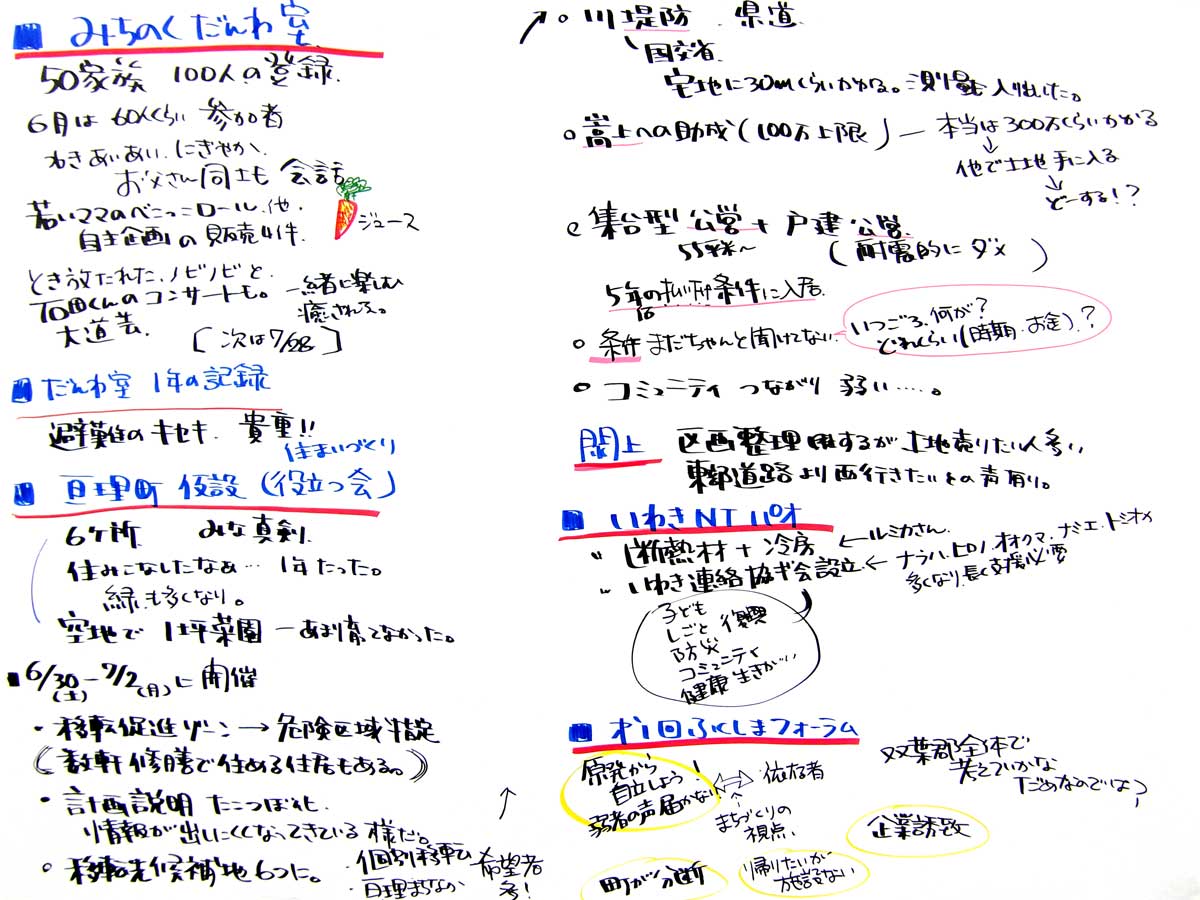 ■ みちのくだんわ室
50家族 100人の登録.
6月は 60人くらい 参加者
わきあいあい. にぎやか.
お父さん同士も 会話
若いママのべこっこロール. 他.
自主企画の販売4件.
ジュース
とき放たれた. ノビノビと.
石田くんのコンサートも。 一緒に楽しむ
癒される。
大道芸. [次は7/28]
■ だんわ室 1年の記録
避難生のキセキ. 貴重!!
住まいづくり
■ 亘理町 仮設 (役立つ会)
6ヶ所 みな真剣.
住みこなしたなぁ… 1年たった。
緑も多くなり。
空地で 1坪菜園 ーあまり育てなかった。
■ 6/30(土) - 7/2(月) に開催
・移転促進ゾーン → 危険区域指定
(数軒 修繕で住める住居もある。)
・計画説明 たこつぼ化.
情報が出しにくくなってきている様だ。
○ 移転先候補地6つに。
・個別移転
・亘理まちなか
希望者
多!
○ 川堤防. 県道.
国交省.
宅地に30mくらいかかる。測量入りだした。
○ 嵩上への助成(100万上限) ー 本当は300万くらいかかる
↓
他で土地手に入る
↓
どーする!?
○ 集合型 公営 + 戸建 公営.
55平米〜 (耐震的にダメ)
5年の払い下げ条件に入居.
10
○ 条件 まだちゃんと聞けてない.
いつごろ. 何が?
どれくらい(時期. お金).?
○ コミュニティ つながり 弱い……。
閖上 区画整理 用するが 土地売りたい人多い
東部道路より西行きたいとの声有り。
■ いわきNTパオ
" 断熱材 + 冷房 ← ルミカさん.
" いわき連絡協ギ会設立 ← ナラハ. ヒロノ. オオクマ. ナミエ. トミオカ
多くなり. 長く支援必要
子ども
しごと 復興
防災
コミュニティ
健康 生きがい
■ 才1回ふくしまフォーラム
原発から
自立しよう!
弱者の声届かない
⇔ 依存者
↑
まちづくりの
視点.
双葉郡全体で
考えていかな
だめなのでは?
企業誘致
町が分断
帰りたいが
施設ない